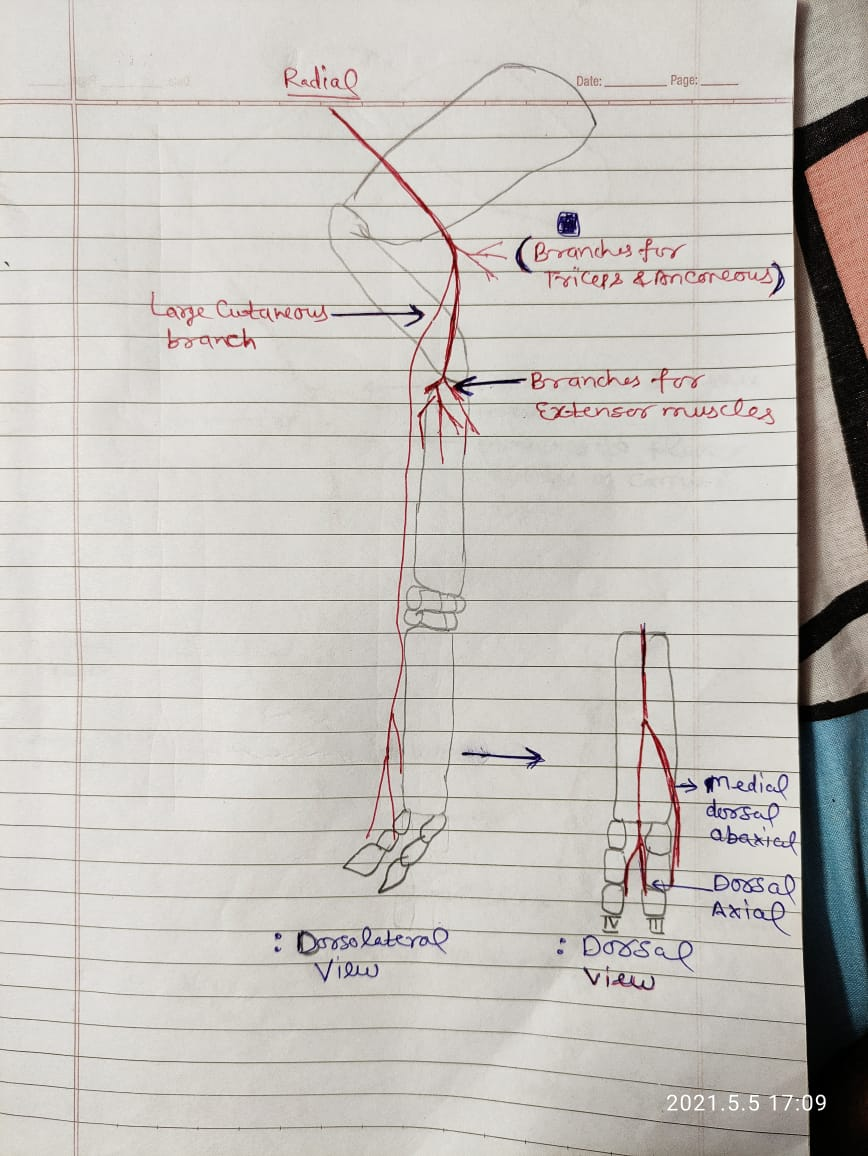 Radial
Date: Page:
(Branches for
Triceps & Anconeous)
Large Cutaneous
branch
Branches for
Extensor muscles
Medial
dorsal
abaxial
Dorsal
Axial
IV III
: Dorsolateral
View
: Dorsal
View
2021.5.5 17:09